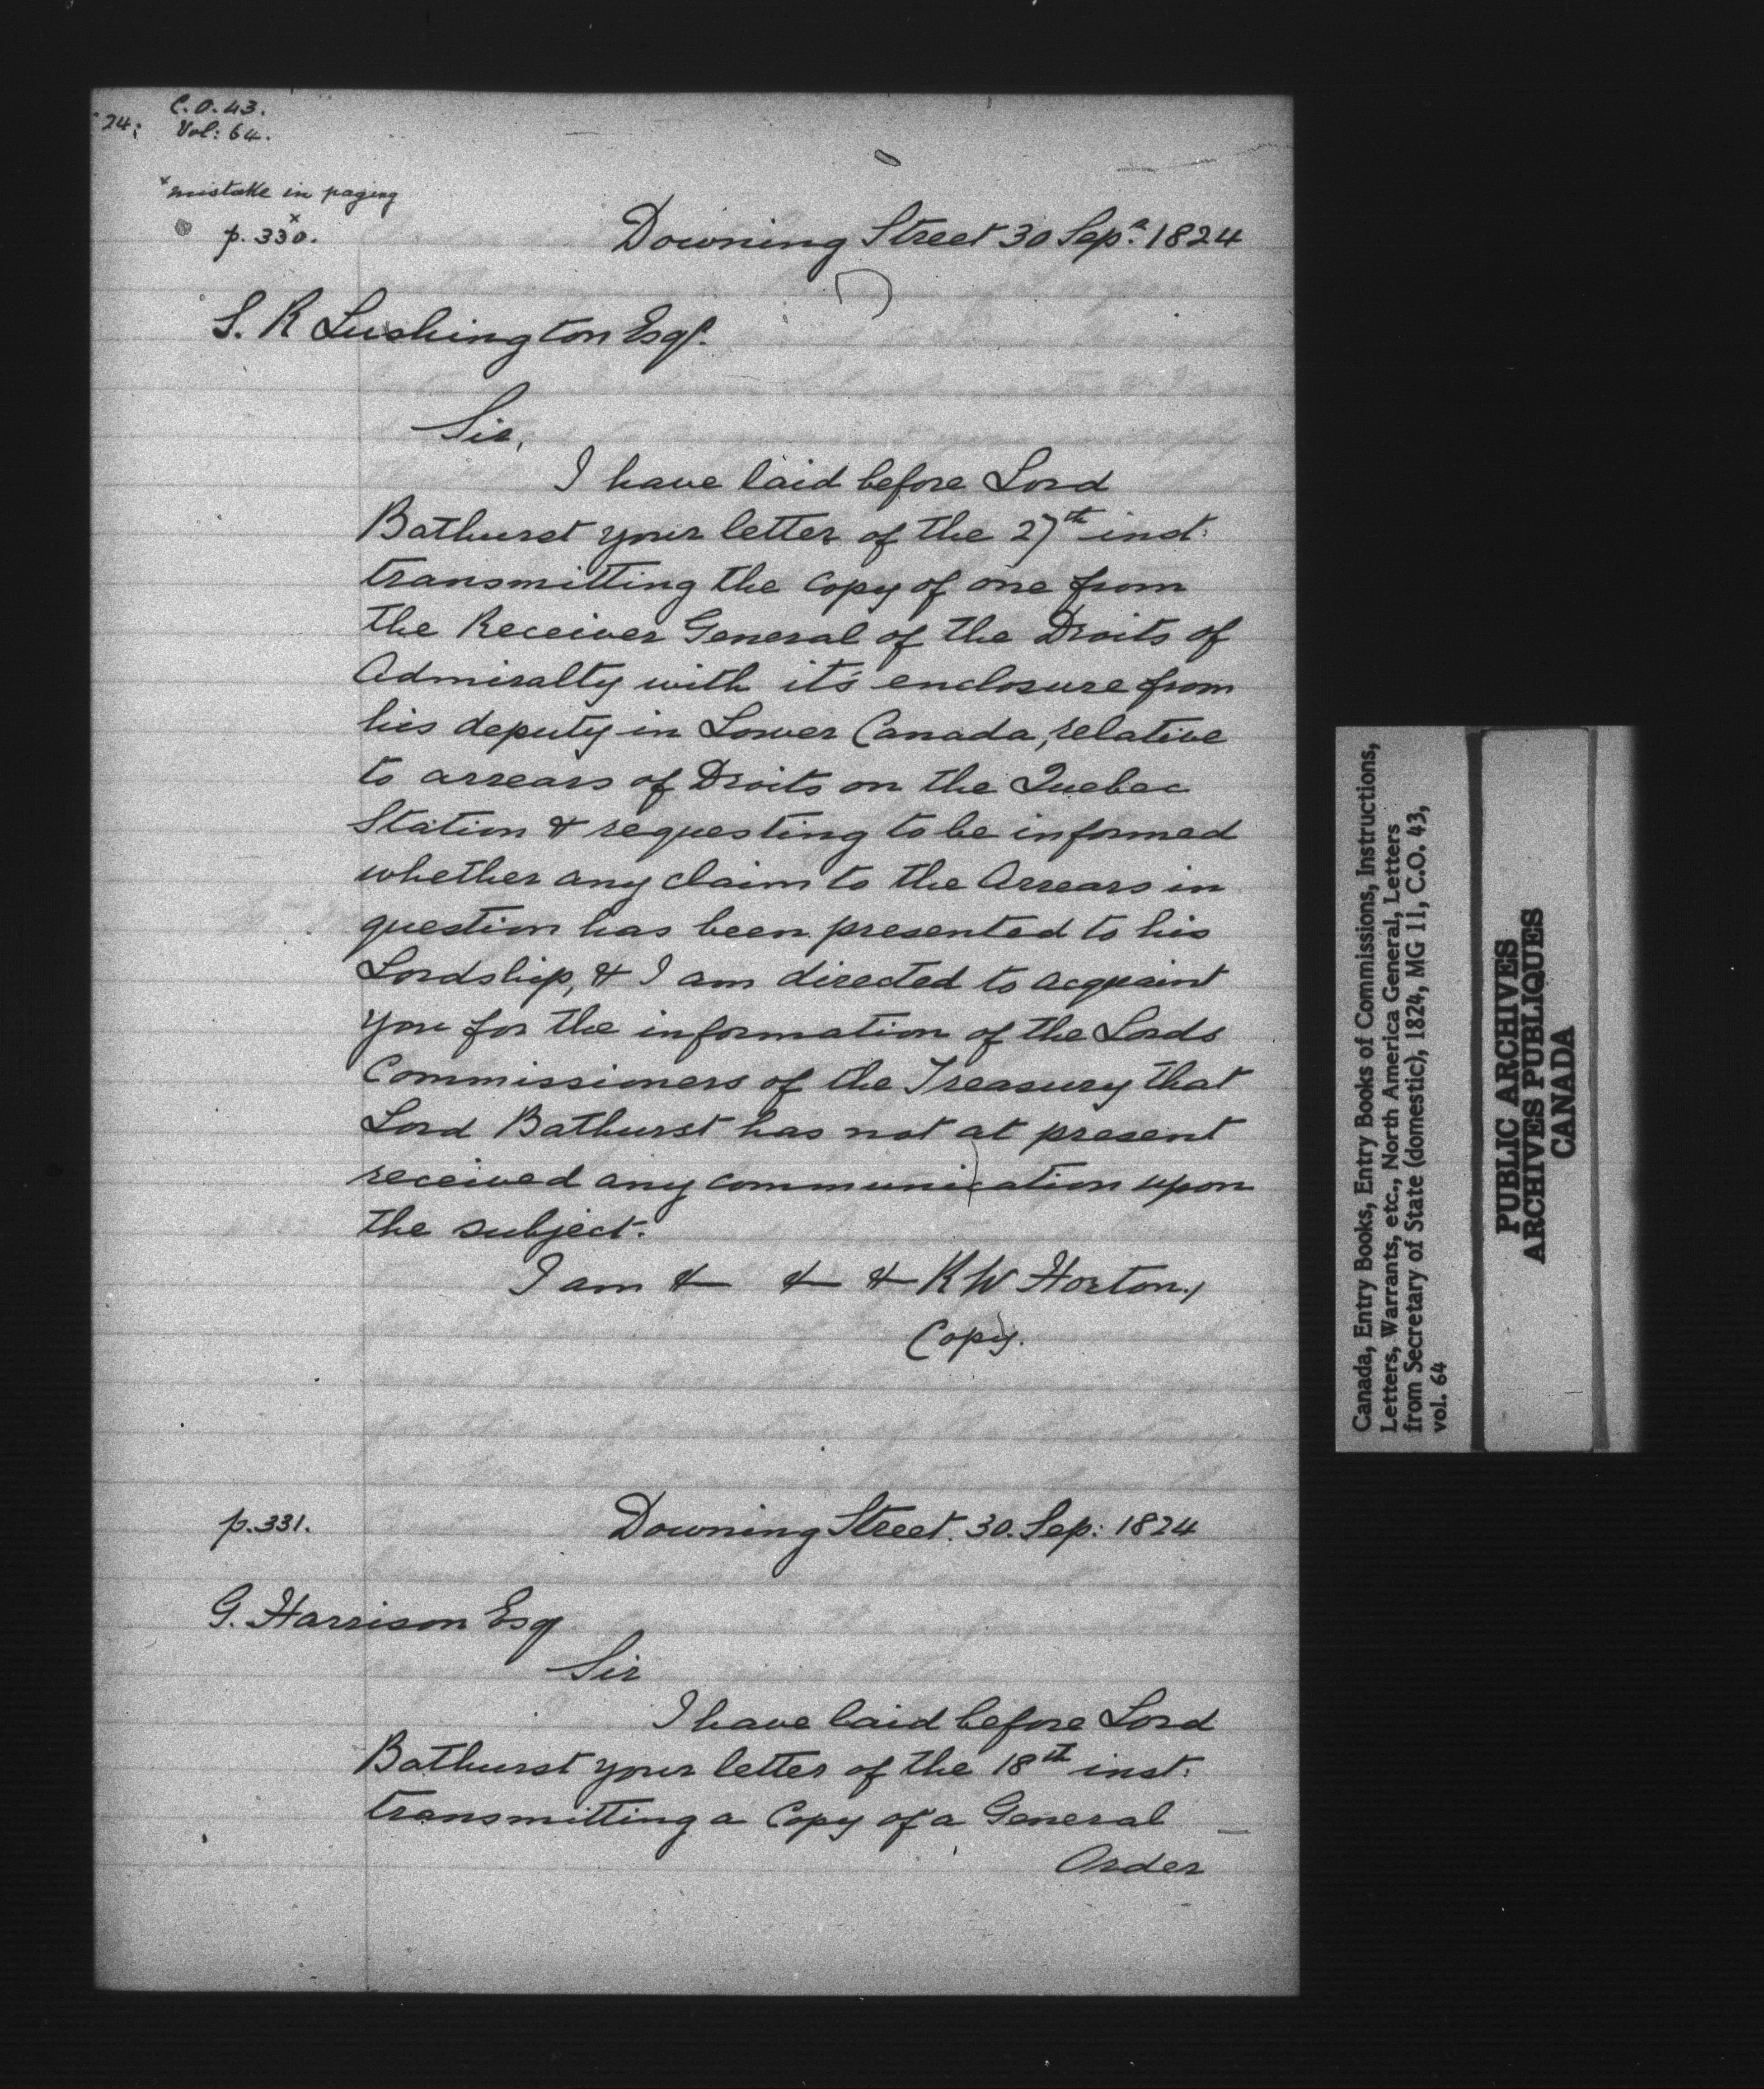 C.O. 43.
'24; Vol: 64.
x mistake in paging
p. 330. x
Downing Street 30 Sepr. 1824
S. R Lushington Esqr.
Sir,
I have laid before Lord
Bathurst your letter of the 27th inst:
transmitting the Copy of one from
the Receiver General of the Droits of
Admiralty with it's enclosure from
his deputy in Lower Canada, relative
to arrears of Droits on the Quebec
Station & requesting to be informed
whether any claim to the Arrears in
question has been presented to his
Lordship, & I am directed to acquaint
you for the information of the Lords
Commissioners of the Treasury that
Lord Bathurst has not at present
received any communication upon
the subject.
I am & & & R W Horton,
Copy.
p. 331.
Downing Street. 30. Sep: 1824
G. Harrison Esq
Sir
I have laid before Lord
Bathurst your letter of the 18th inst:
transmitting a Copy of a General
Order
Canada, Entry Books, Entry Books of Commissions, Instructions,
Letters, Warrants, etc., North America General, Letters
from Secretary of State (domestic), 1824, MG 11, C.O. 43,
vol. 64
PUBLIC ARCHIVES
ARCHIVES PUBLIQUES
CANADA